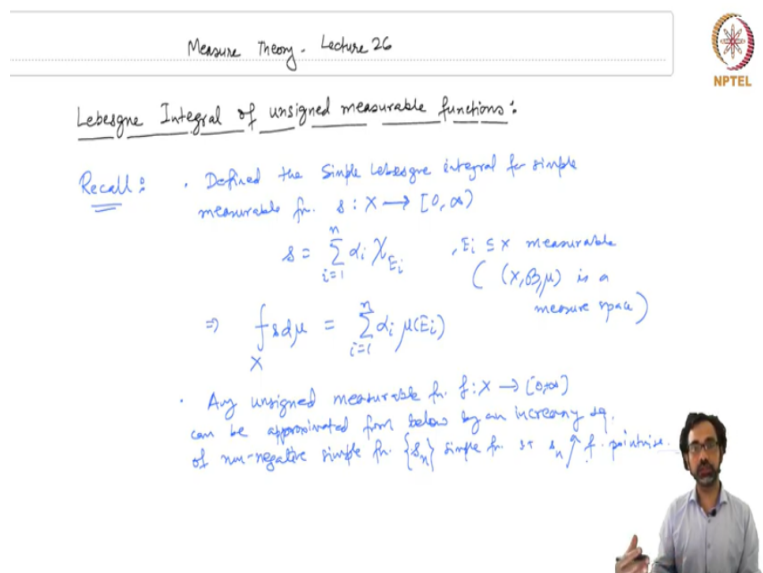 Measure Theory - Lecture 26
NPTEL
Lebesgue Integral of unsigned measurable functions:
Recall: . Defined the simple Lebesgue integral for simple
measurable fn. s : X → [0, ∞)
s = Σ_{i=1}^{n} α_i χ_{E_i} , E_i ⊆ X measurable
( (X, B, μ) is a
measure space )
⇒ ∫_X s dμ = Σ_{i=1}^{n} α_i μ(E_i)
. Any unsigned measurable fn. f : X → [0, ∞]
can be approximated from below by an increasing sq.
of non-negative simple fn. {s_n} simple fn. st s_n ↑ f pointwise.